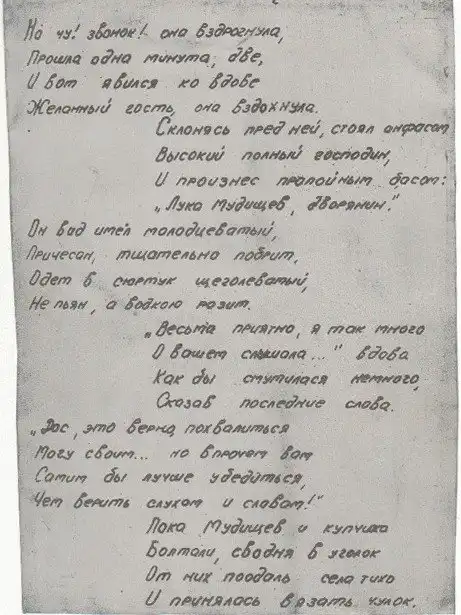 Но чу! звонок! она вздрогнула,
Прошла одна минута, две,
И вот явился ко вдове
Желанный гость, она вздохнула.
Склонясь пред ней, стоял анфасом
Высокий полный господин,
И произнес пропойным басом:
„Лука Мудищев, дворянин."
Он вад имел молодцеватый,
Причесан, тщательно побрит,
Одет в сюртук щеголеватый,
Не пьян, а водкою разит.
„Весьма приятно, я так много
О вашем слышала..." вдова
Как бы смутилася немного,
Сказав последние слова.
„Дос, это верно, похвалиться
Могу своим... но впрочем вам
Самим бы лучше убедиться,
Чем верить слухам и словам!"
Пока Мудищев и купчиха
Болтали, сводня в уголок
От них поодаль села тихо
И принялась вязать чулок.